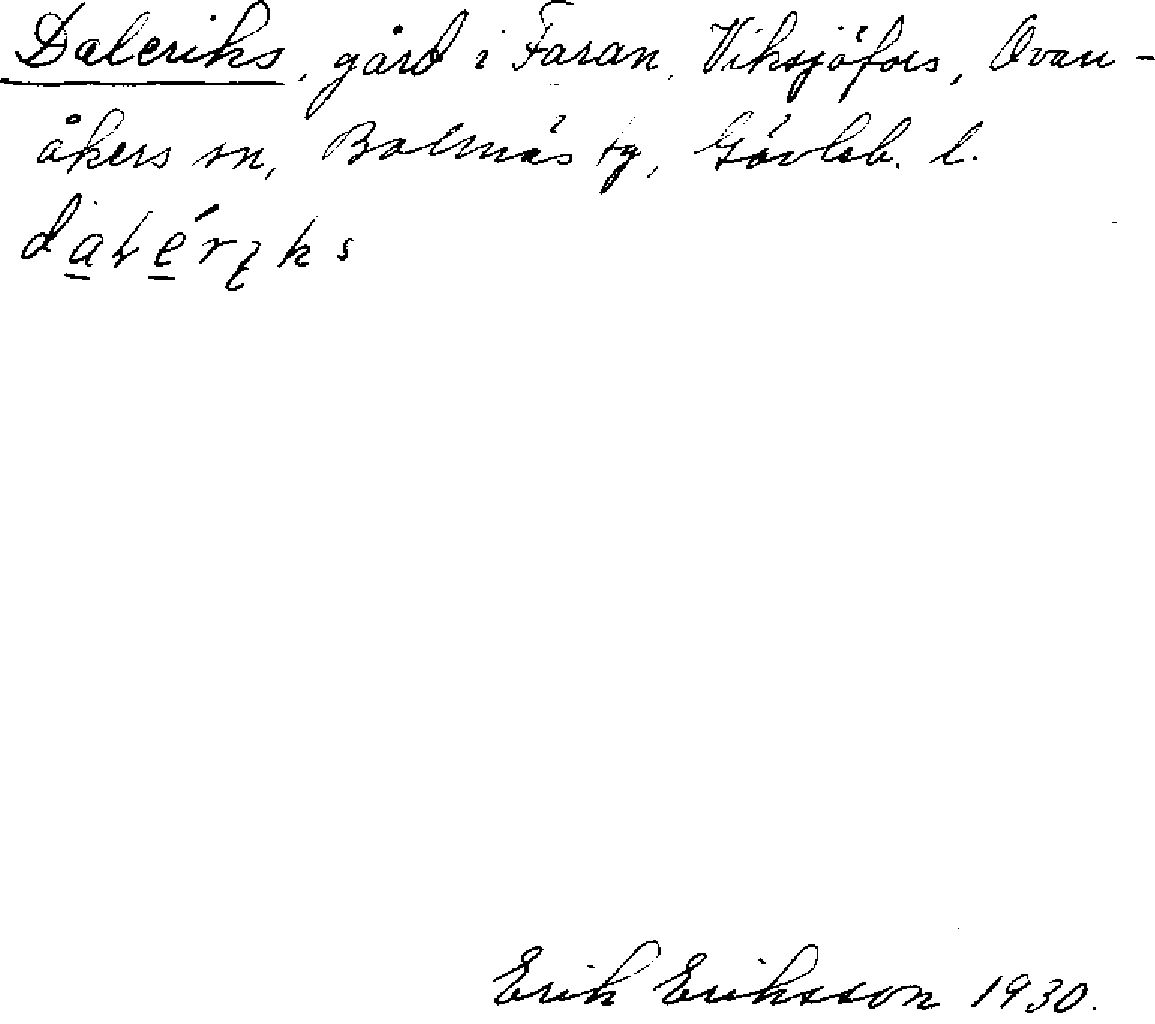 Daleriks, gård i Faran, Viksjöfors, Ovan-
åkers sn, Bollnäs tg, Gävleb. l.
Erik Eriksson 1930.